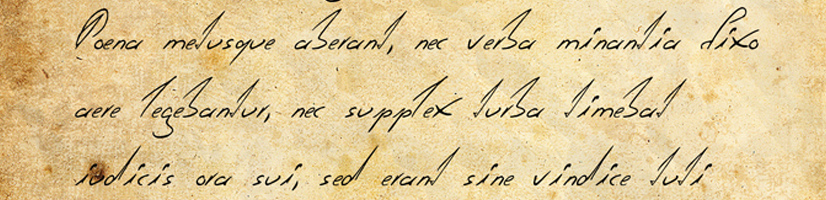 Poena metusque aberant, nec verba minantia fixo
aere legebantur, nec supplex turba timebat
iudicis ora sui, sed erant sine vindice tuti